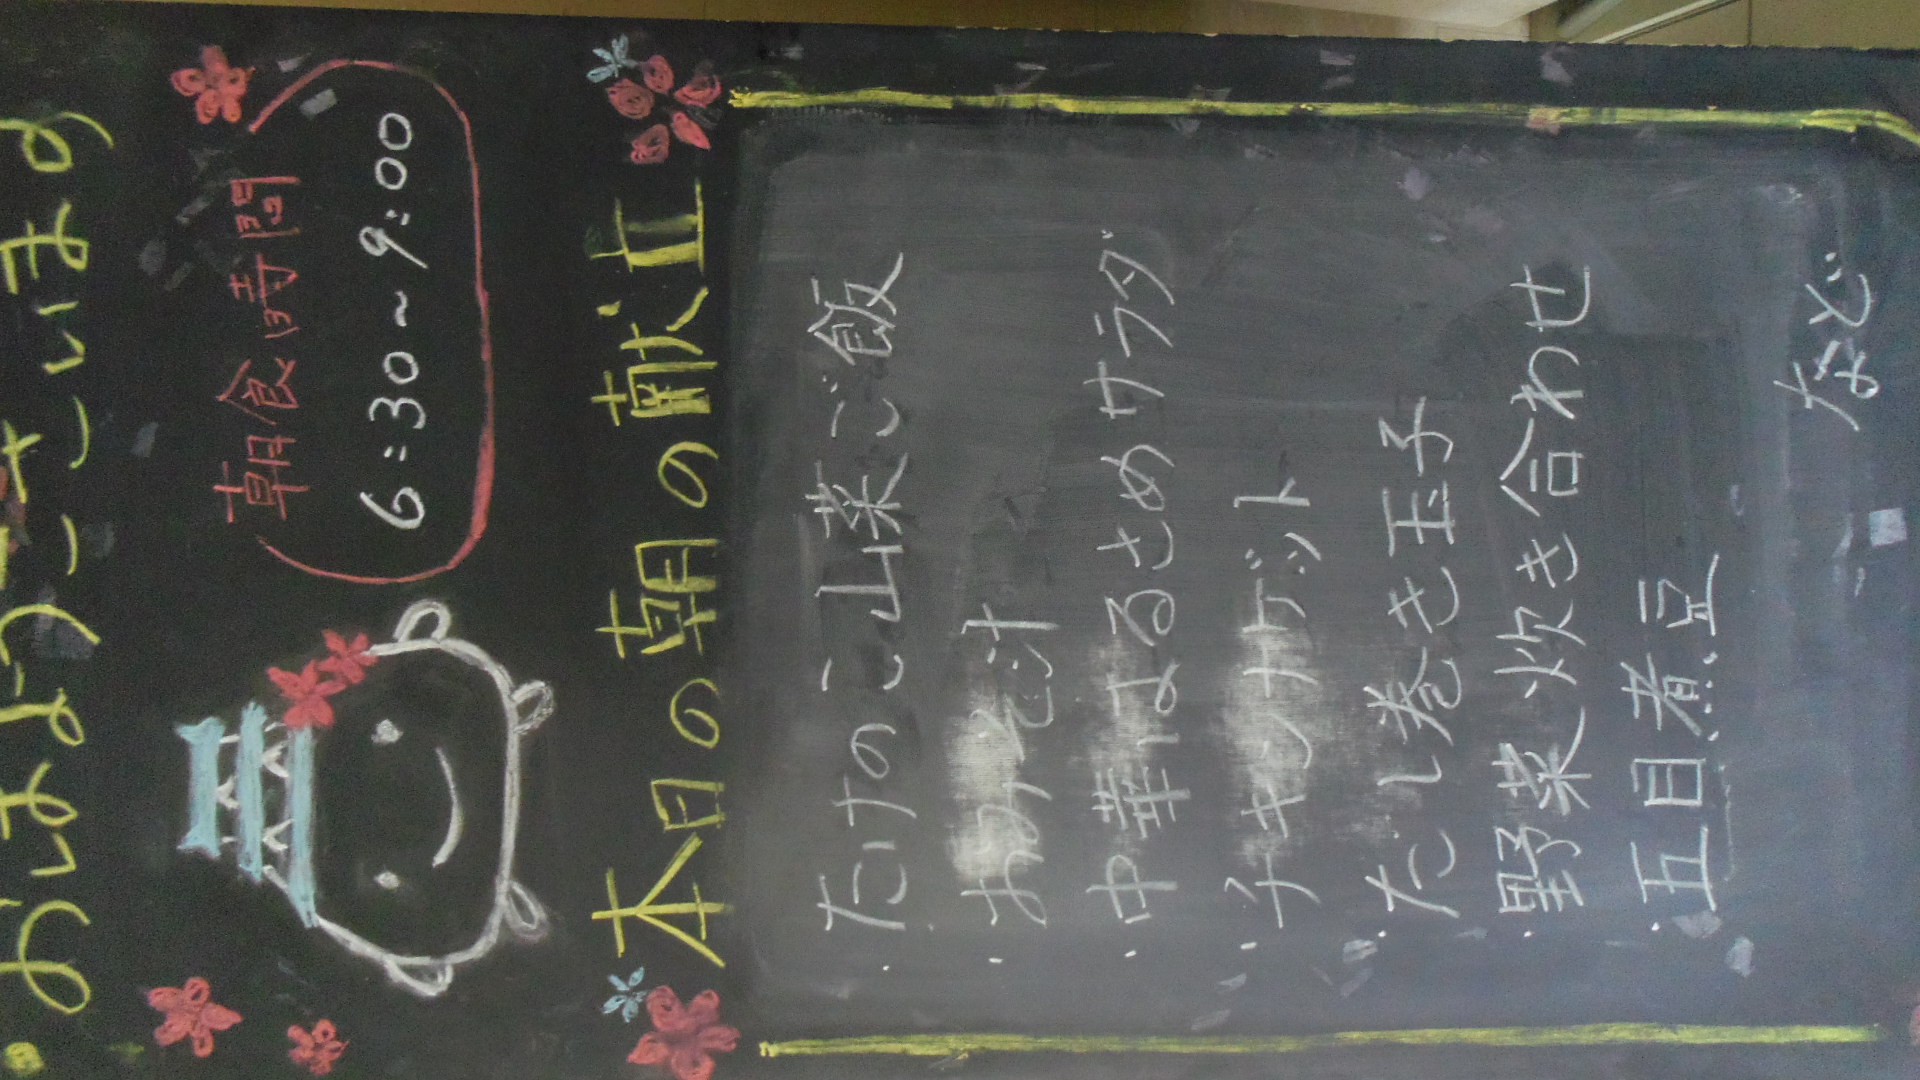 おはようございます
朝食時間
6:30~9:00
本日の朝の献立
・たけのこ山菜ご飯
・おみそ汁
・中華はるさめサラダ
・チキンナゲット
・だし巻き玉子
・野菜炊き合わせ
・五目煮豆
など